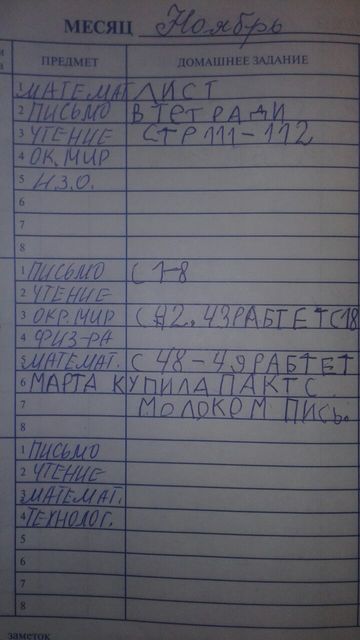 МЕСЯЦ Ноябрь
ПРЕДМЕТ ДОМАШНЕЕ ЗАДАНИЕ
1 МАТЕМАТ ЛИСТ
2 ПИСЬМО В ТЕТРАДИ
3 ЧТЕНИЕ СТР 111-112
4 ОК. МИР
5 ИЗО.
6
7
8
1 ПИСЬМО С 1-8
2 ЧТЕНИЕ
3 ОКР. МИР С 42. 43 РАБТЕТ С 18
4 ФИЗ-РА
5 МАТЕМАТ. С 48-49 РАБТЕТ
6 МАРТА КУПИЛА ПАКТ С
7 МОЛОКОМ ПИСЬ.
8
1 ПИСЬМО
2 ЧТЕНИЕ
3 МАТЕМАТ.
4 ТЕХНОЛОГ.
5
6
7
8
заметок